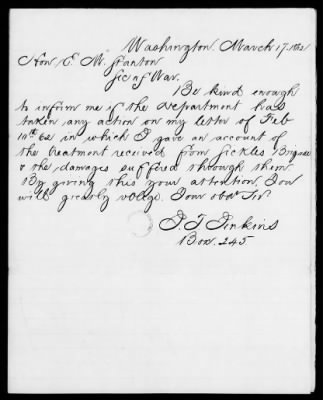 Washington. March 17. 1862
Hon E. M. Stanton
Sec of War.
Be kind enough
to inform me if the Department has
taken any action on my letter of Feb
10th 62 in which I gave an account of
the treatment received from Sickles Brigade
& the damages suffered through them
By giving this your attention, you
will greatly oblige. Your obdt Svt.
J. T. Jenkins
Box. 245